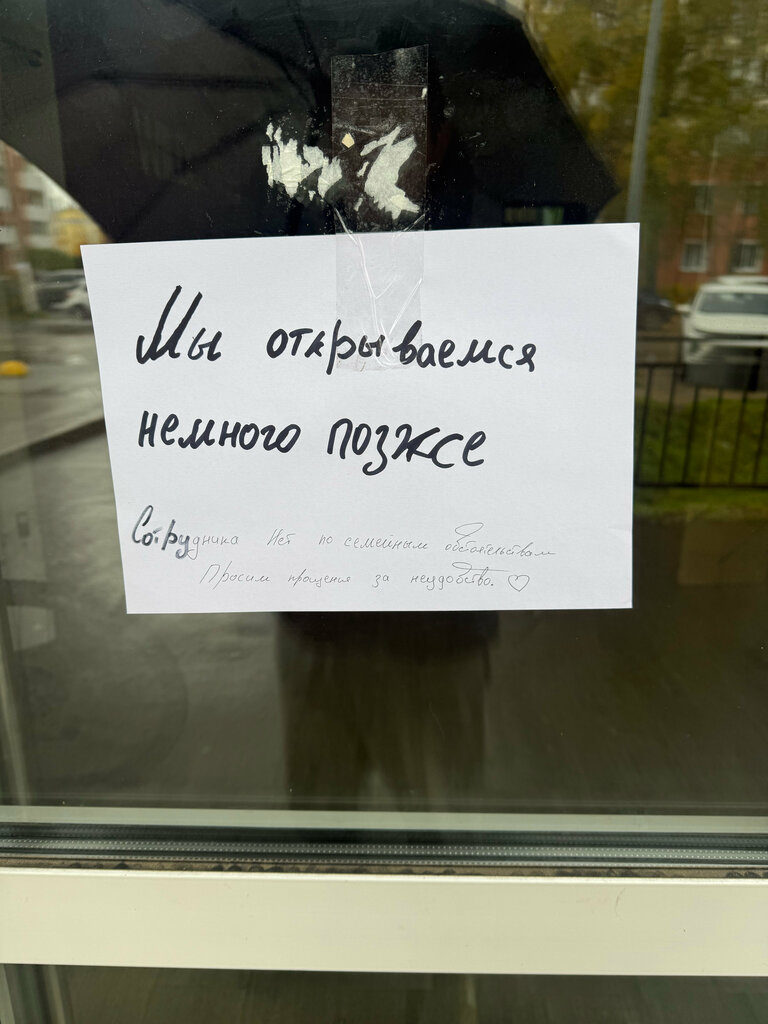 Мы открываемся
немного позже
Сотрудника Нет по семейным обстоятельствам
Просим прощения за неудобство. ♡